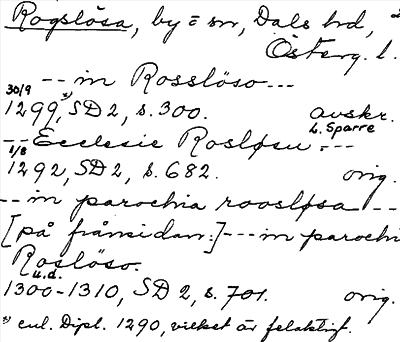 Rogslösa, by = sn, Dals hd,
Österg. l.
-- in Rosslöso ---
30/9
1299,*) SD 2, s. 300. avskr.
L. Sparre
-- Ecclesie Rosløsu ---
1/8
1292, SD 2, s. 682. orig.
-- in parochia roosløsa --
[på frånsidan:] --- in parochi
Roslöso.
u.d.
1300-1310, SD 2, s. 701. orig.
*) enl. Dipl. 1290, vilket är felaktigt.